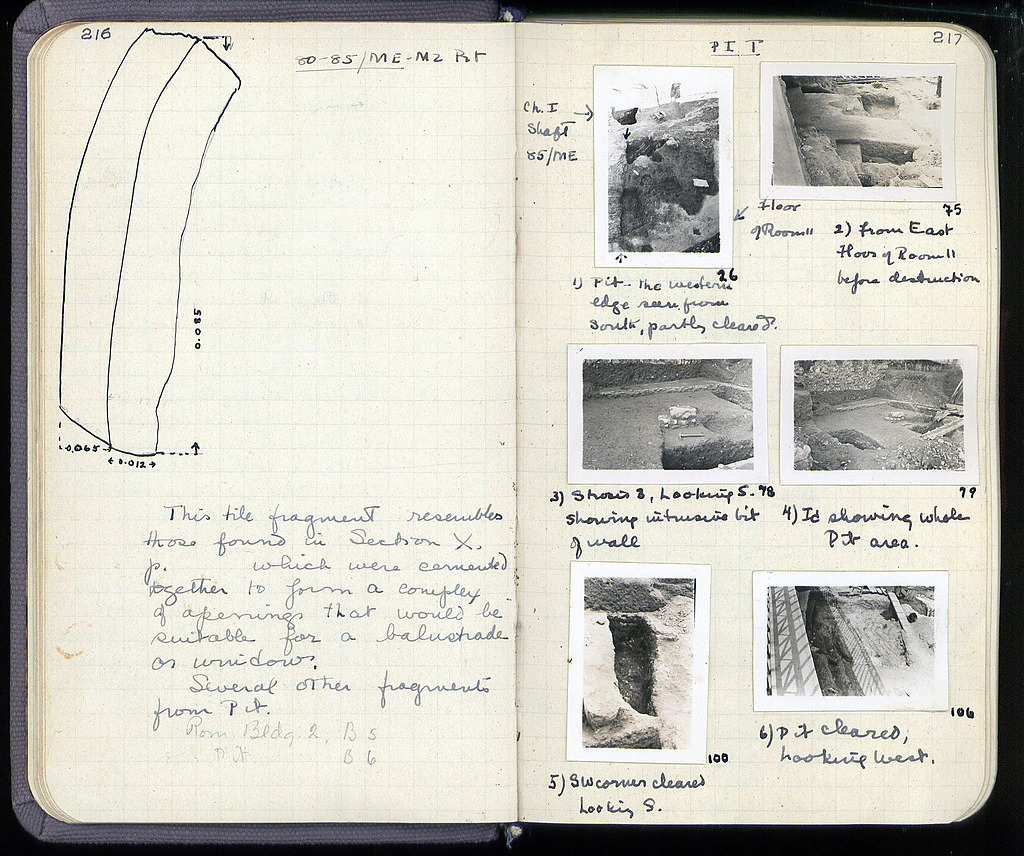 216
80-85/ME-MZ Pit
0.085
0.065
0.012
This tile fragment resembles
those found in Section X,
p. which were cemented
together to form a complex
of openings that would be
suitable for a balustrade
or window.
Several other fragments
from Pit.
Rom. Bldg. 2, B 5
Pit B 6
217
PIT
Ch. I
Shaft
85/ME
Floor
of Room 11
26
1) Pit - the western
edge seen from
South, partly cleared.
75
2) from East
Floor of Room 11
before destruction
78
3) Strosis 8, Looking S.
showing intrusive bit
of wall
79
4) Id showing whole
Pit area.
100
5) SW corner cleared
Looking S.
106
6) Pit cleared,
Looking West.